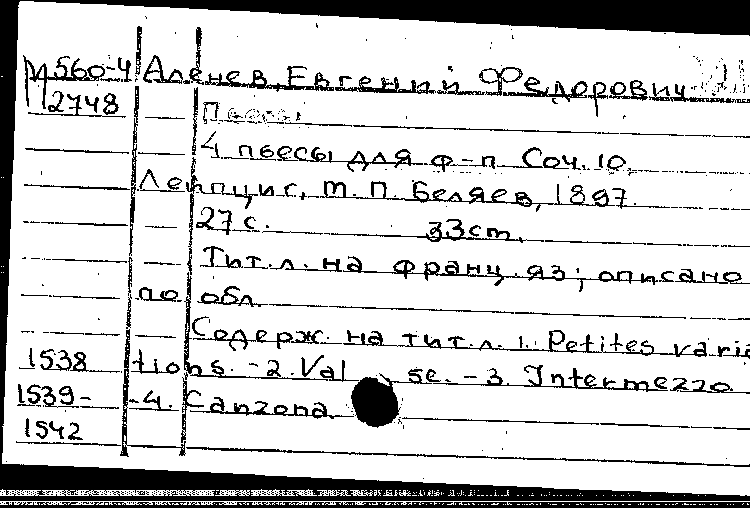 М560-4 Аленев, Евгений Федорович
2748 Пьесы
4 пьесы для ф-п. Соч. 10.
Лейпциг, М. П. Беляев, 1897.
27 с. 33 cm.
Тит. л. на франц. яз; описано
по обл.
Содерж. на тит. л. 1. Petites varia
1538 tions. - 2. Valse. - 3. Intermezzo
1539- -4. Canzona.
1542